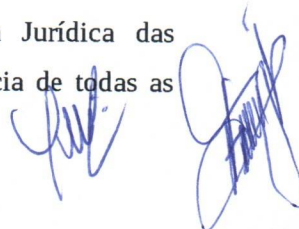 Jurídica das
cia de todas as